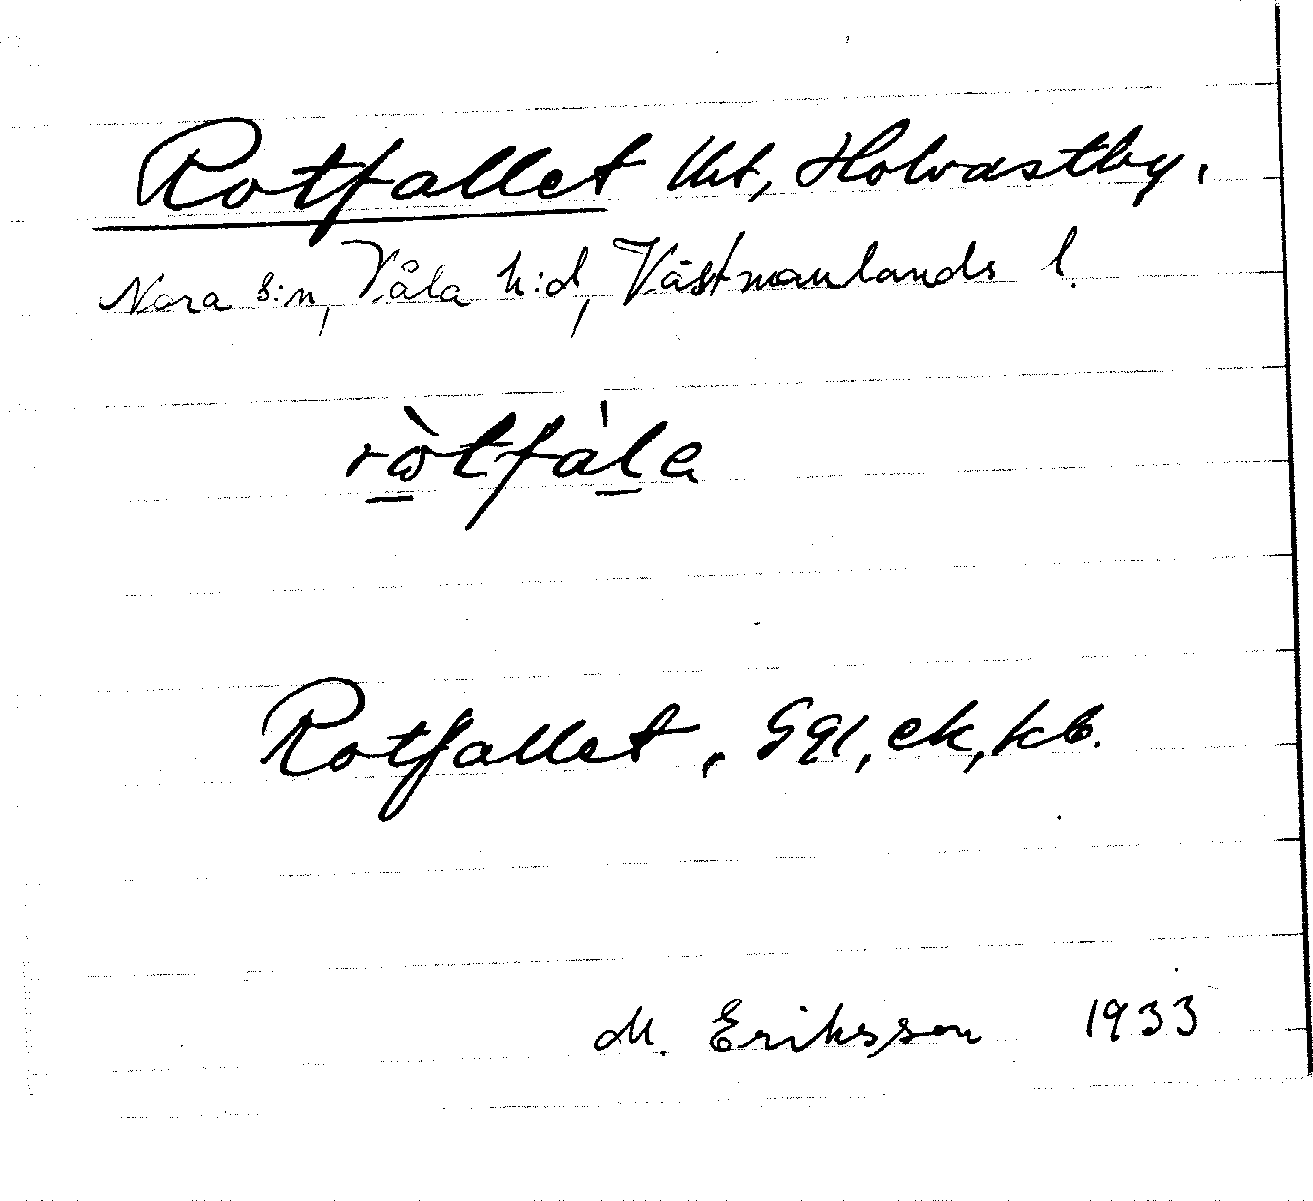 Rotfallet Uht, Holvastby.
Nora s:n, Våla h:d, Västmanlands l.
ròtfála
Rotfallet, Ggl, ek, kb.
M. Eriksson 1933